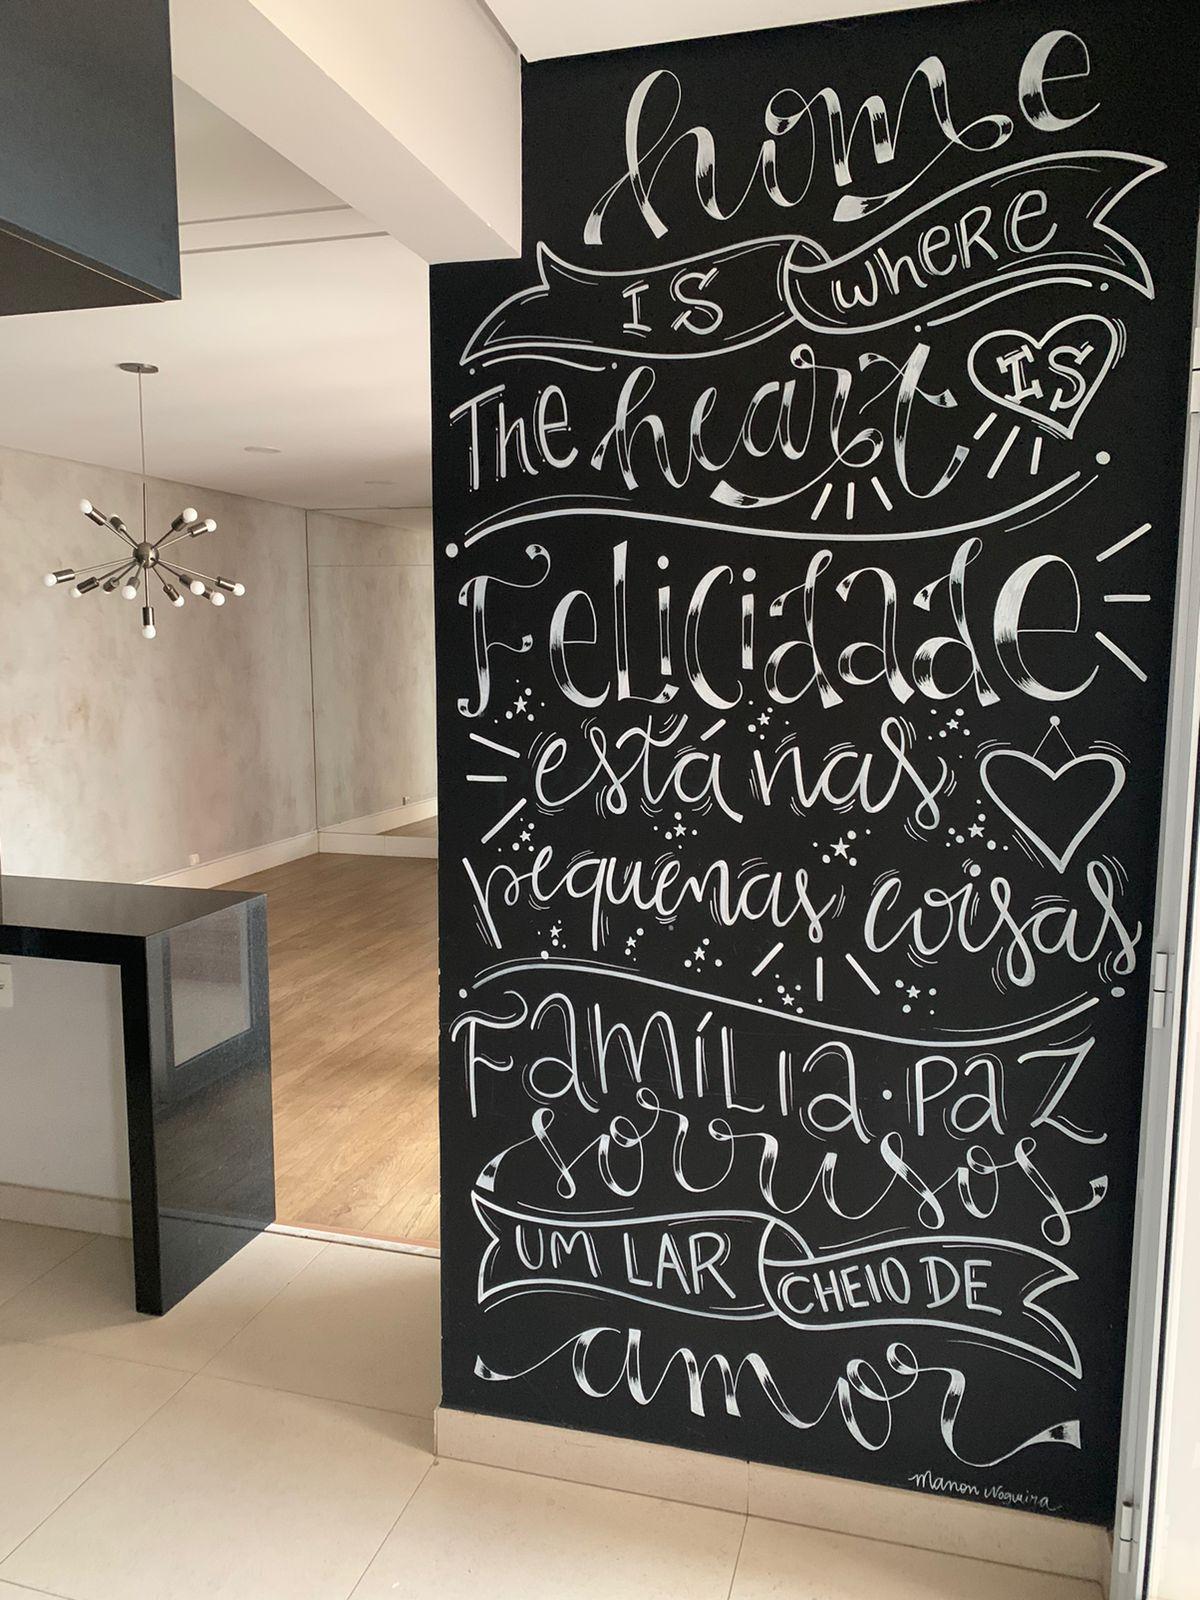 home
IS WHERE
The heart IS
Felicidade
está nas
pequenas coisas
Família • Paz
sorrisos
UM LAR CHEIO DE
amor
Manon Nogueira